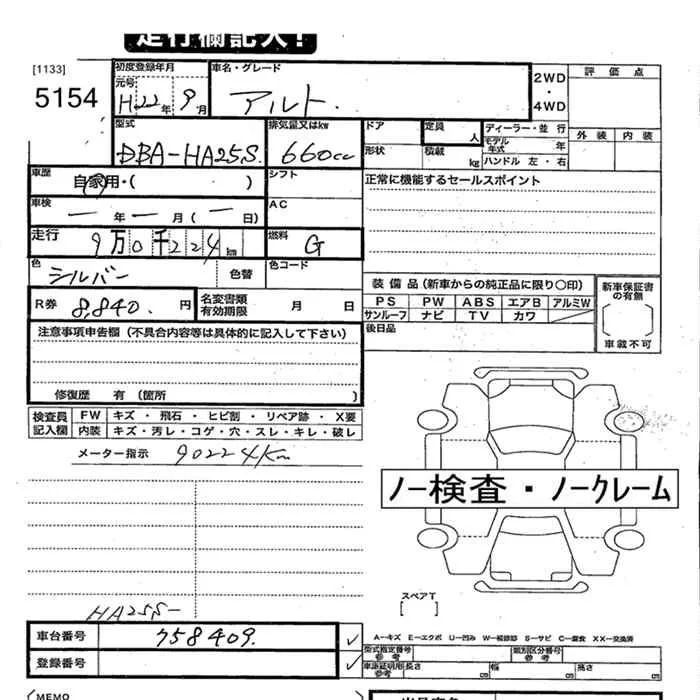 走行欄記入！
[1133]
5154
初度登録年月
元号
H22年9月
車名・グレード
アルト.
2WD
・
4WD
評価点
外装 内装
型式
DBA-HA25S.
排気量又はkw
660cc
ドア
定員 人
形状
積載 kg
ディーラー・並行
モデル年式 年
ハンドル 左・右
車歴
自家用・( )
シフト
正常に機能するセールスポイント
車検
ー年ー月(ー日)
AC
走行
9万0千224km
燃料
G
色
シルバー
色替
色コード
装備品(新車からの純正品に限り〇印)
PS PW ABS エアB アルミW
サンルーフ ナビ TV カワ
新車保証書の有無
( )
車載不可
R券 8,840. 円
名変書類有効期限 月 日
後日品
注意事項申告欄(不具合内容等は具体的に記入して下さい)
修復歴 有(箇所 )
検査員記入欄
FW キズ・飛石・ヒビ割・リペア跡・X要
内装 キズ・汚レ・コゲ・穴・スレ・キレ・破レ
メーター指示 90224Km
ノー検査・ノークレーム
スペアT
[ ]
HA25S-
車台番号 758409.
登録番号
A-キズ E-エクボ U-凹み W-補修跡 S-サビ C-腐食 XX-交換済
型式指定番号 参考
類別区分番号 参考
車検証明用 参考 長さ cm 幅 cm 高さ cm
MEMO